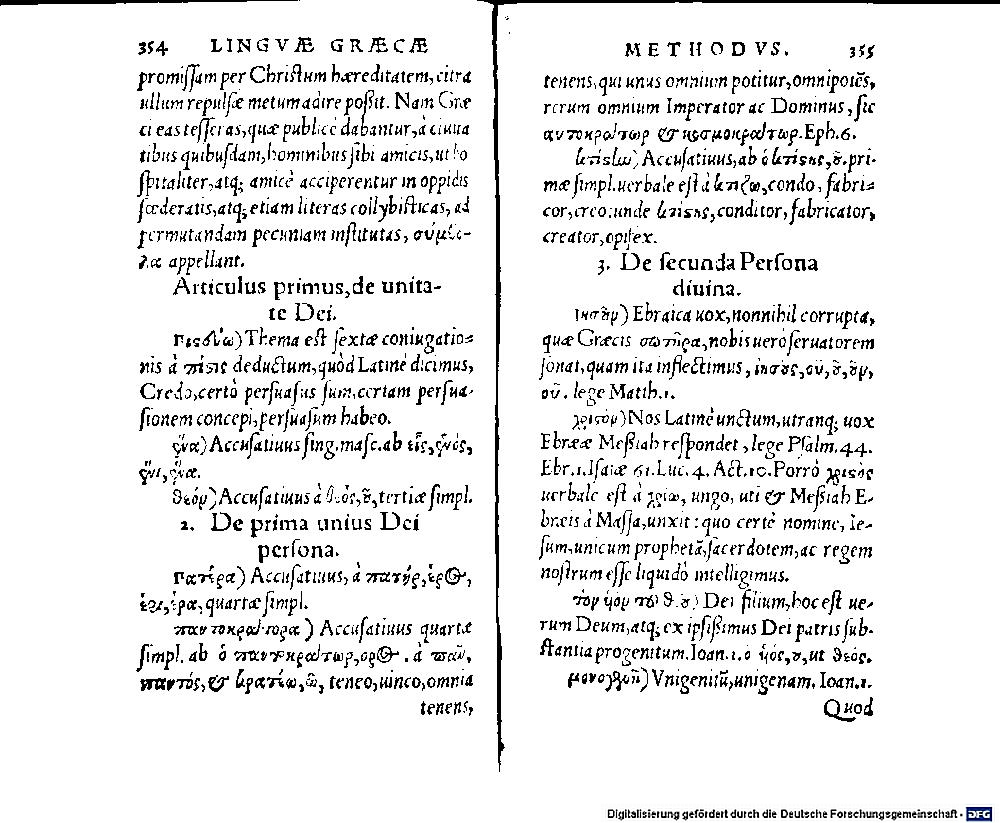 354 LINGVÆ GRÆCÆ
promiſſam per Chriſtum hæreditatem, citra
ullum repulſæ metum adire poßit. Nam Græ
ci eas teſſeras, quæ publicè dabantur, à ciuita
tibus quibuſdam, hominibus ſibi amicis, ut ho
ſpitaliter, atq; amicè acciperentur in oppidis
fœderatis, atq; etiam literas collybiſticas, ad
permutandam pecuniam inſtitutas, σύμβο-
λα appellant.
Articulus primus, de unita-
te Dei.
Πιςδύω) Thema eſt ſextæ coniugatio=
nis à πίςις deductum, quòd Latinè dicimus,
Credo, certò perſuaſus ſum, certam perſua-
ſionem concepi, perſuaſum habeo.
ἕνα) Accuſatiuus ſing. maſc. ab εἷς, ἑνός,
ἑνι, ἕνα.
θεόν) Accuſatiuus à θεός, ȣ, tertiæ ſimpl.
2. De prima unius Dei
perſona.
Πατέρα) Accuſatiuus, à πατήρ, έρος,
έρι, έρα, quartæ ſimpl.
παντοκράτορα) Accuſatiuus quartæ
ſimpl. ab ὁ παντοκράτωρ, ορος. à πᾶν,
παντός, & κρατέω, ῶ, teneo, uinco, omnia
tenens,
METHODVS. 355
tenens, qui unus omnium potitur, omnipotẽs,
rerum omnium Imperator ac Dominus, ſic
αυτοκράτωρ & κοσμοκράτωρ. Eph. 6.
κτίςlω) Accuſatiuus, ab ὁ κτίςης, ȣ. pri-
mæ ſimpl. uerbale eſt à κτίζω, condo, fabri=
cor, creo: unde κτίςης, conditor, fabricator,
creator, opifex.
3. De ſecunda Perſona
diuina.
Ιησȣν) Ebraica uox, nonnihil corrupta,
quæ Græcis σωτῆρα, nobis uerò ſeruatorem
ſonat, quam ita inflectimus, ἰησȣς, οῦ, ȣ, ȣν,
οῦ. lege Matth. 1.
χριςόν) Nos Latinè unctum, utranq; uox
Ebrææ Meßiah reſpondet, lege Pſalm. 44.
Ebr. 1. Iſaiæ 61. Luc. 4. Act. 10. Porrò χριςός
uerbale eſt à χρίω, ungo, uti & Meßiah E-
bræis à Maſſa, unxit: quo certè nomine, Ie-
ſum, unicum prophetã, ſacerdotem, ac regem
noſtrum eſſe liquidò intelligimus.
τὸν ὑὸν τοῦ θ.ȣ) Dei filium, hoc eſt ue-
rum Deum, atq; ex ipſißimus Dei patris ſub-
ſtantia progenitum. Ioan. 1. ὁ ὑός, ȣ, ut θεός.
μονογενῆ) Vnigenitũ, unigenam. Ioan. 1.
Quod
Digitalisierung gefördert durch die Deutsche Forschungsgemeinschaft - DFG